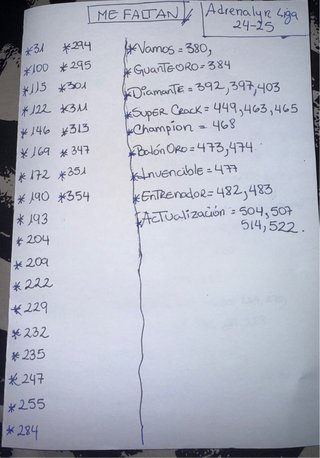 ME FALTAN
Adrenalyn Liga
24-25
*31 *294
*100 *295
*115 *301
*122 *311
*146 *313
*169 *347
*172 *351
*190 *354
*193
*204
*209
*222
*229
*232
*235
*247
*255
*284
*Vamos = 380,
*Guante ORO = 384
*Diamante = 392, 397, 403
*Super Crack = 449, 463, 465
*Champion = 468
*Balón Oro = 473, 474.
*Invencible = 477
*Entrenador = 482, 483
*Actualización = 504, 507
514, 522.